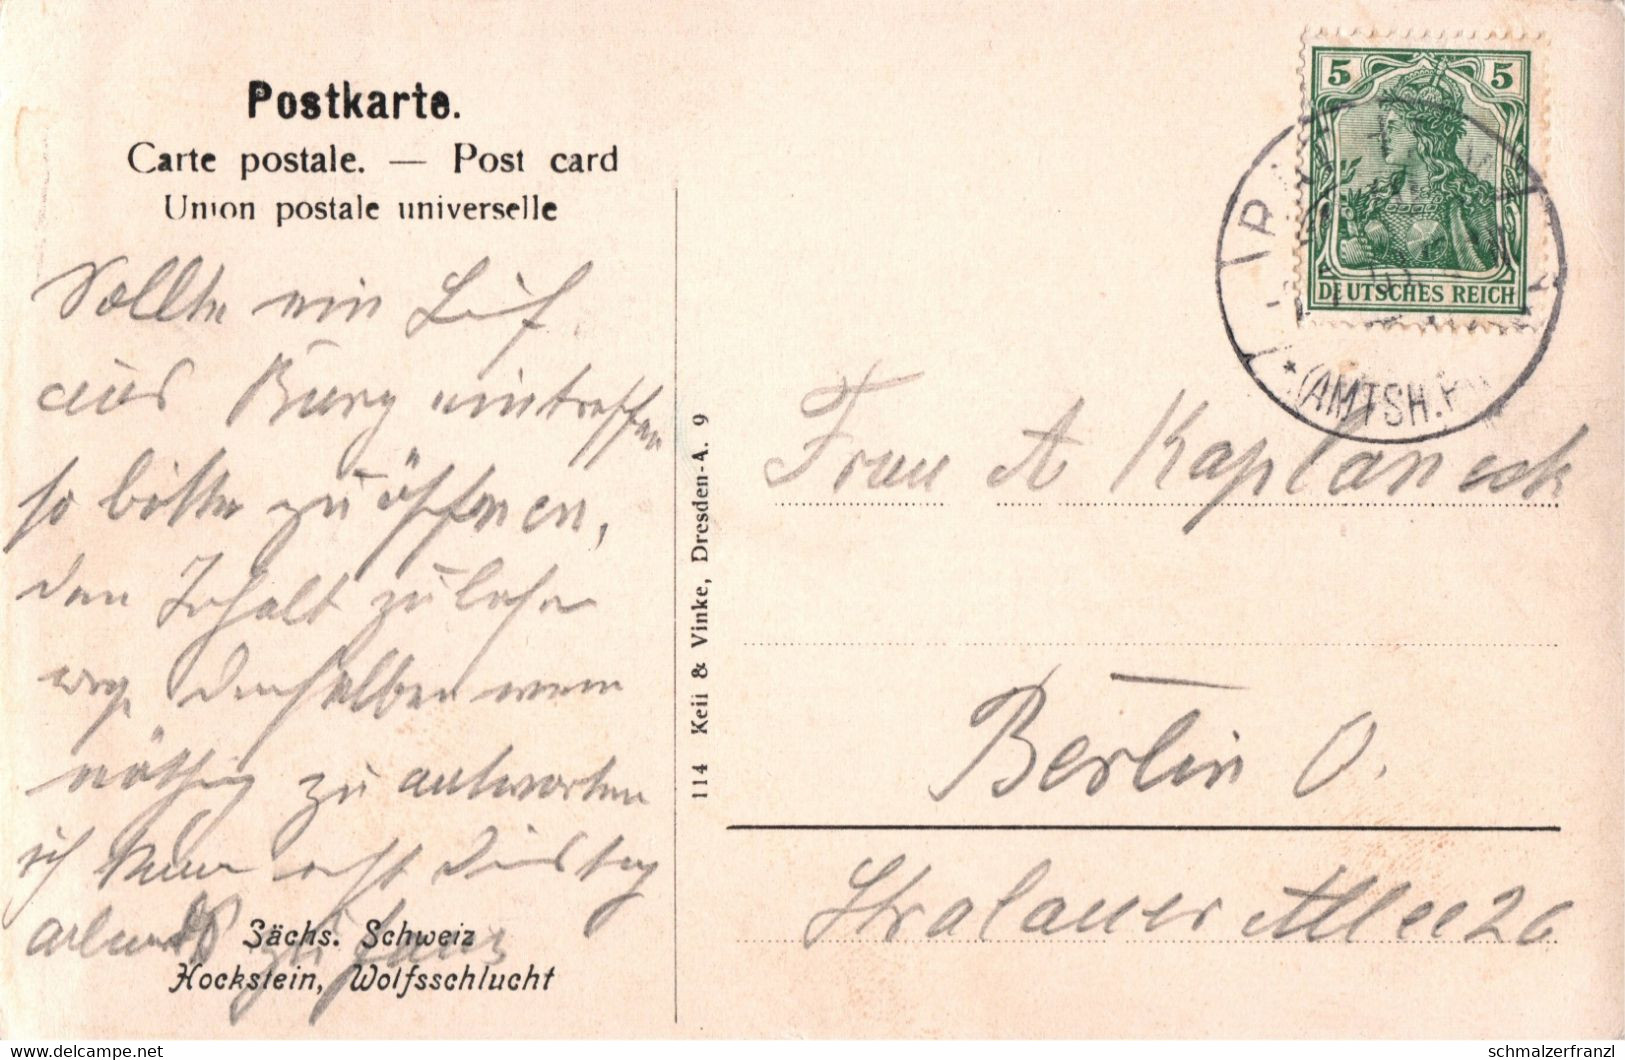 Postkarte.
Carte postale. — Post card
Union postale universelle
Sollte ein Brief
aus Burg eintreffen
so bitte zu öffnen,
den Inhalt zu lesen
denselben wenn
nöthig zu antworten
ich komme erst Dienstag
abends zu Haus
Sächs. Schweiz
Hockstein, Wolfsschlucht
114 Keil & Vinke, Dresden-A. 9
5 5
DEUTSCHES REICH
(AMTSH.
Frau A Kaplaneck
Berlin O.
Stralauer Allee 26
© delcampe.net
schmalzerfranzl